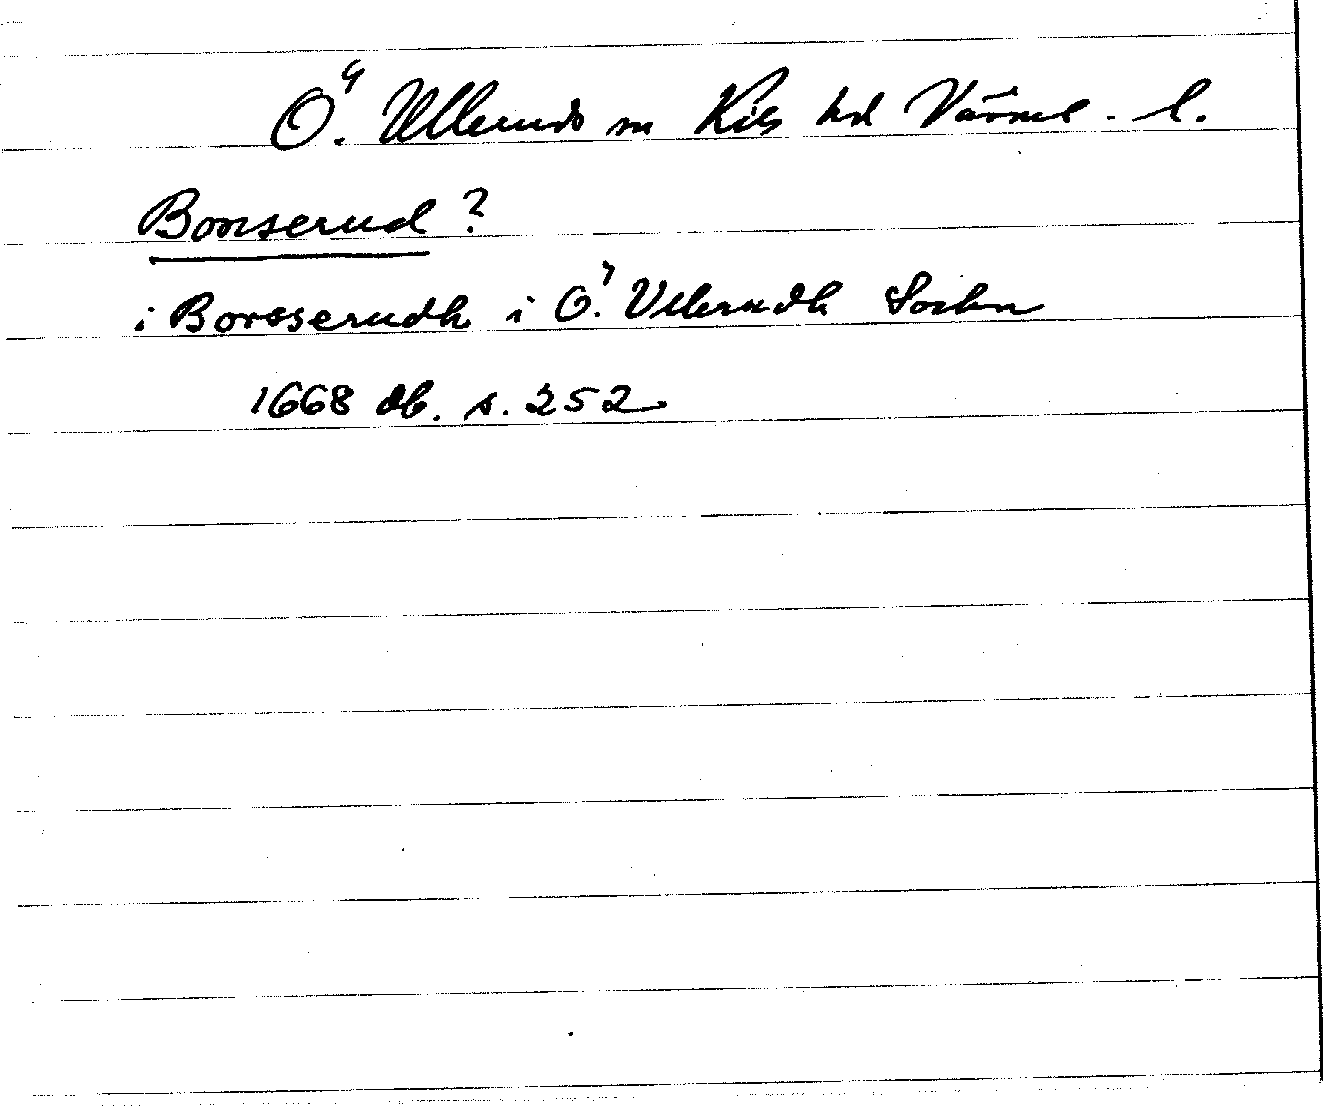 Ö. Ulleruds sn Kils hd Värml. l.
Bonserud?
i Borsserudh i Ö. Ullerudh Sochn
1668 db. s. 252